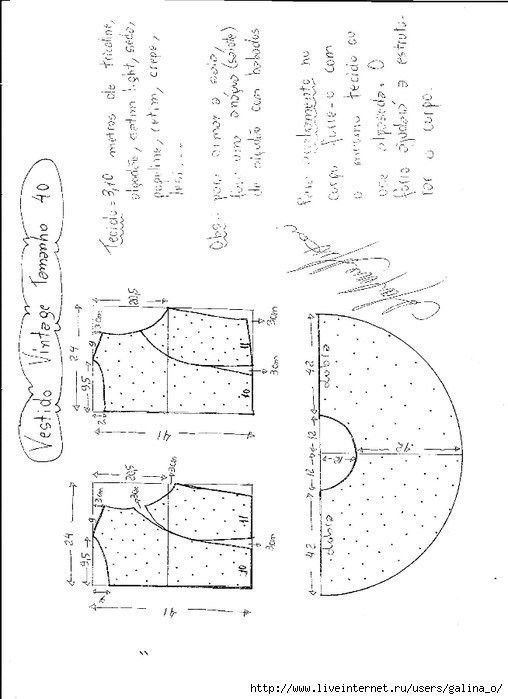 Vestido Vintage Tamanho 40
Tecido = 3,10 metros de tricoline,
algodão, cetim light, seda,
popeline, cetim, crepe,
Obs.: para armar a saia,
faça uma anágua (saiote)
de algodão com babados
Para acabamento no
corpo forre-o com
o mesmo tecido ou
use alpaseda. O
forro ajudará a estrutu-
rar o corpo.
24
9,5
9
3cm
20,5
3cm
10
11
3cm
41
24
9,5
9
3cm
20,5
2
10
11
3cm
3cm
41
42
12
12
42
dobra
dobra
12
42
http://www.liveinternet.ru/users/galina_o/